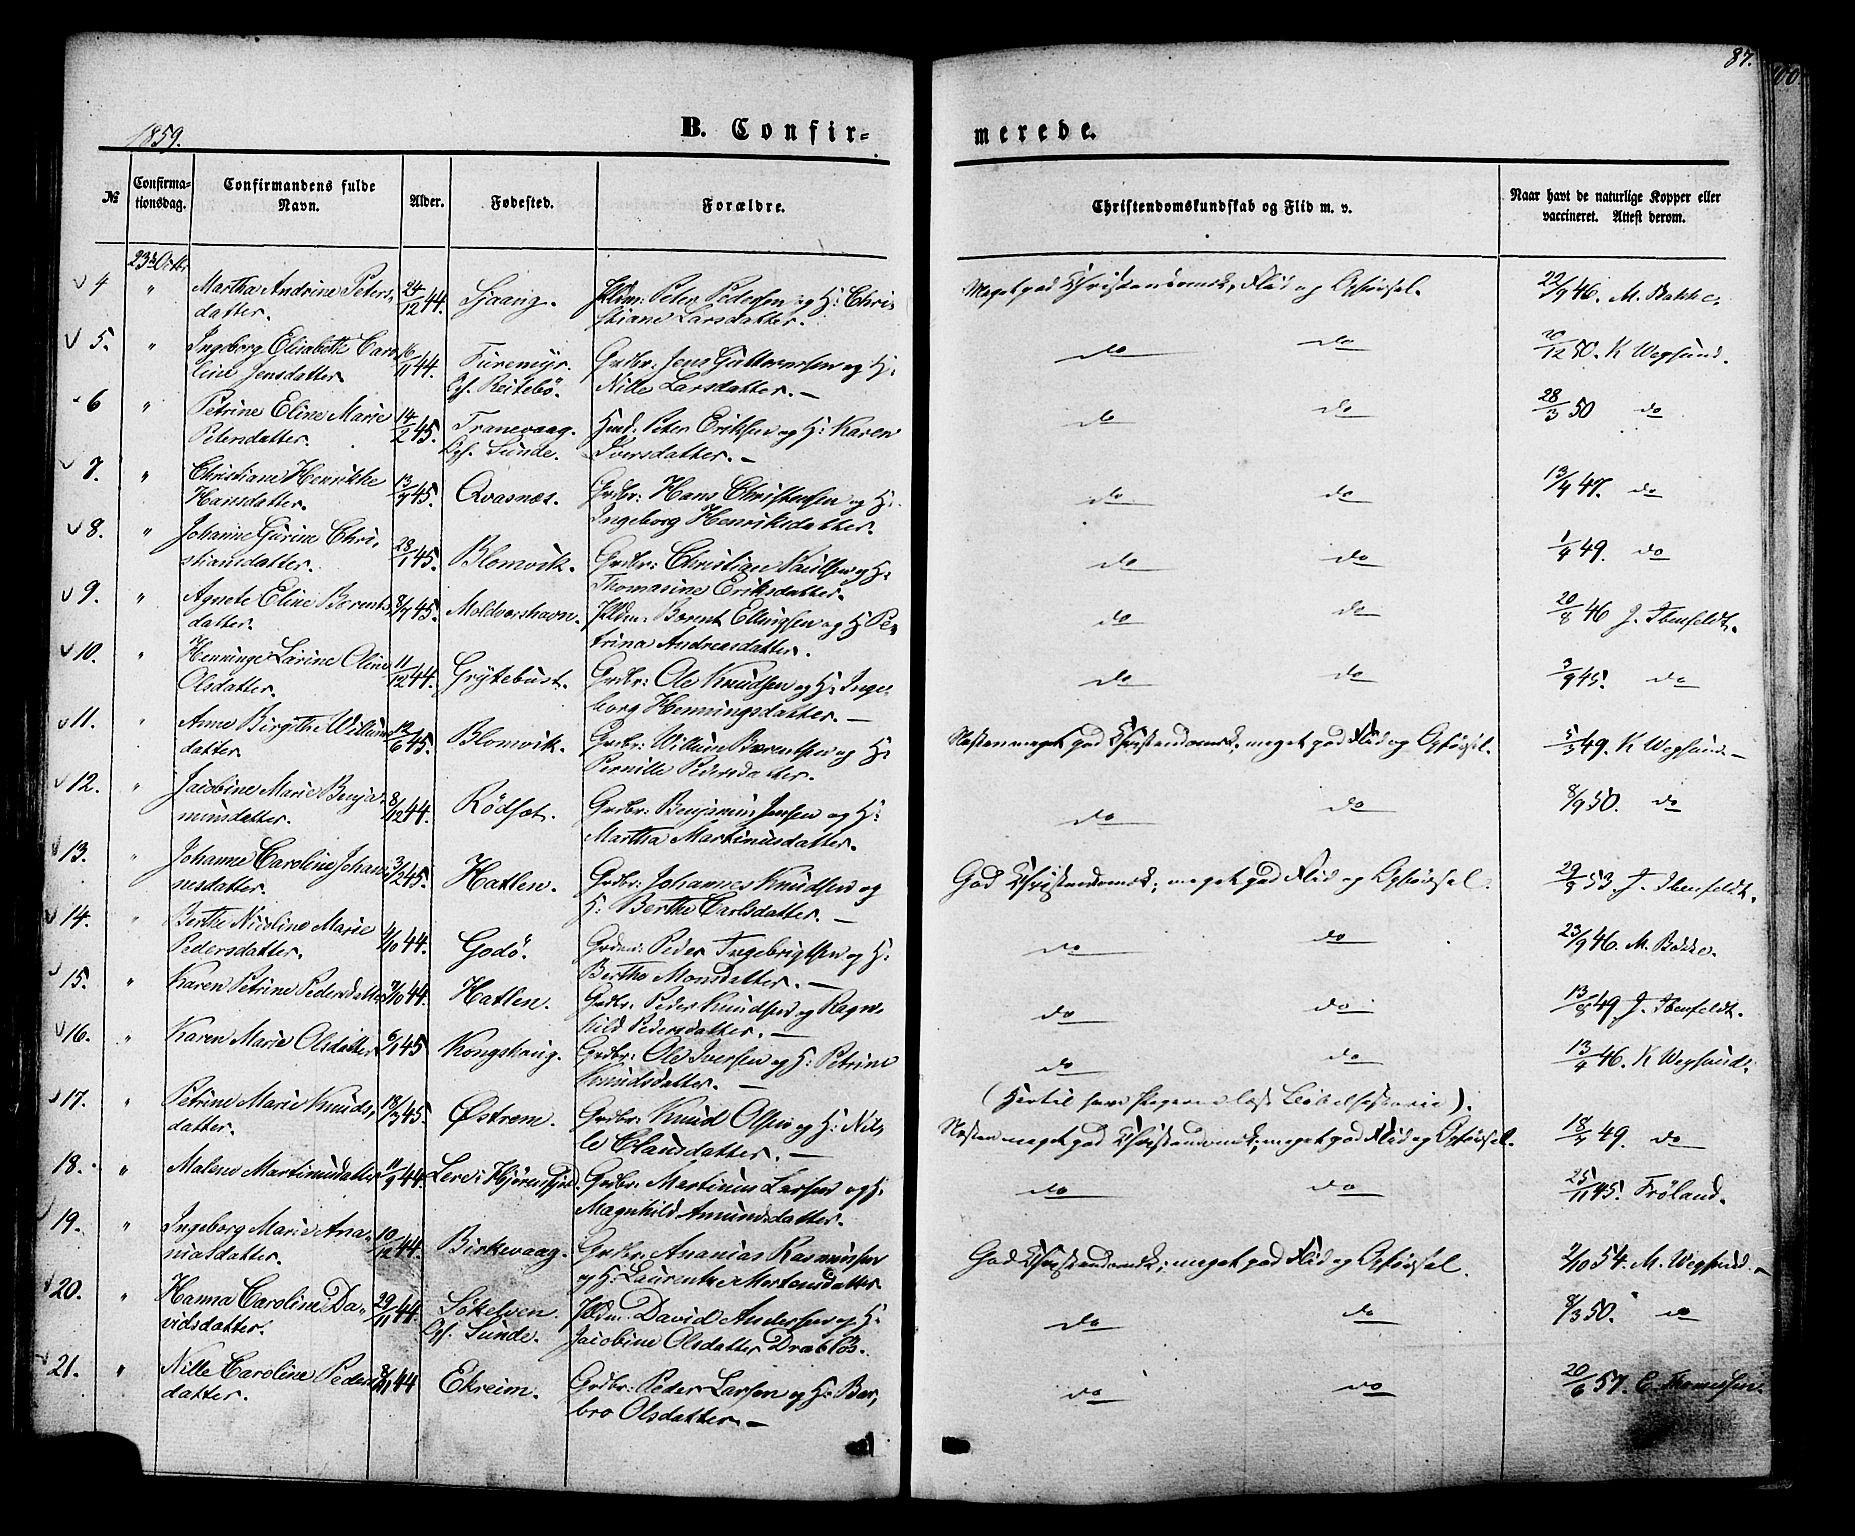 87.
1859.
B. Confir-
merede.
№
Confirma-
tionsdag.
Confirmandens fulde
Navn.
Alder.
Fødested.
Forældre.
Christendomskundskab og Flid m. v.
Naar havt de naturlige Kopper eller
vaccineret. Attest derom.
23de Octbr
4 " Martha Andrine Peters- 24/12 44. Sjaang. Hdm: Peter Pedersen og H: Chri- Meget god Christendomsk, Flid og Opførsel. 22/9 46. M. Bakke.
datter. stiane Larsdatter.
5. " Ingeborg Elisabeth Caro- 16/11 44. Furemyr. Grdbr: Jens Guttormsen og H: do do /12 50. K Wegsund.
line Jensdatter. Nille Larsdatter. —
Reitebö.
6 " Petrine Eline Marie 14/2 45. Tranevaag. Peter Eriksen og H: Karen do do 28/3 50 do
Petersdatter. Sunde. Iversdatter. —
7. " Christiane Henrikke 13/4 45. Qvasnæs. Grdbr: Hans Christensen og H: do do 13/4 47. do
Hansdatter. Ingeborg Henriksdatter.
8. " Johanne Gurine Chri- 28/1 45. Blomvik. Grdbr: Christian Paulsen og H: do do 1/4 49. do
stiansdatter. Thomasine Eriksdatter.
9. " Agnete Eline Berents- 8/7 45. Moldvørshavn. Berent Ellingsen og H: Pe- do do 20/8 46 J. Ibenfeldt.
datter. trina Andreasdatter.
10. " Henninge Larine Oline 11/12 44. Grytebust. Grdbr: Ole Knudsen og H: Inge- do do 3/9 45. do
Olsdatter. borg Henningsdatter. —
11. " Anne Birgithe Willums 12/6 45. Blomvik. Grdbr: Willum Berentsen og H: Næsten meget god Christendomsk, meget god Flid og Opførsel. 5/5 49. K Wegsund. —
datter. Pernille Pedersdatter.
12. " Jacobine Marie Benja- 8/12 44. Rödsæt. Grdbr: Benjamin Jensen og H: do do 8/9 50. do
minsdatter. Martha Martinusdatter.
13. " Johanne Caroline Johan- 3/2 45. Hatlen. Grdbr: Johannes Knudsen og God Christendomsk; meget god Flid og Opførsel. 29/9 53. J. Ibenfeldt.
nesdatter. H: Berthe Carlsdatter. —
14. " Berthe Nicoline Marie /10 44. Godö. Peder Ingebrigtsen og H: do do 23/9 46. M. Bakke.
Pedersdatter. Berthe Monsdatter. —
15. " Karen Petrine Pedersdatter /10 44. Hatlen. Grdbr: Peder Knudsen og Ragn- do do 13/8 49 J. Ibenfeldt.
hild Pedersdatter. —
16. " Karen Marie Olsdatter 6/1 45 Kongshaug. Grdbr: Ole Iversen og H: Petrine do do 13/9 46. K Wegsund.
Knudsdatter. —
17. " Petrine Marie Knuds- 18/3 45. Østrem. Grdbr: Knud Olsen og H: Nil- Næsten meget god Christendomsk; meget god Flid og Opførsel. 18/7 49. do
datter. le Clausdatter. —
18. " Malene Martinusdatter 11/9 44. Grdbr: Martinus Larsen og H: do do 25/11 45. Frøland.
Magnhild Amundsdatter.
19. " Ingeborg Marie Ana- 10/12 44. Birkevaag. Grdbr: Ananias Rasmussen God Christendomsk; meget god Flid og Opførsel. /10 54. M. Wegsund. —
niasdatter. og H: Laurentze Mortensdatter.
20. " Hanna Caroline Da- 29/11 44. Søkelven. David Andersen og H: do do 8/3 50. do
vidsdatter. Sunde. Jacobine Olsdatter Drabløs.
21. " Nille Caroline Peders- 8/11 44 Ekreim. Grdbr: Peder Larsen og H: Bar- do do 20/6 57. E. Thomessen.
datter. bro Olsdatter. —